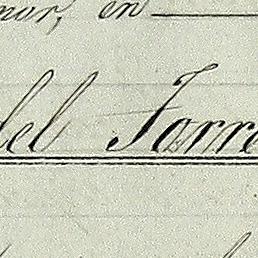 mar, en
del Torre